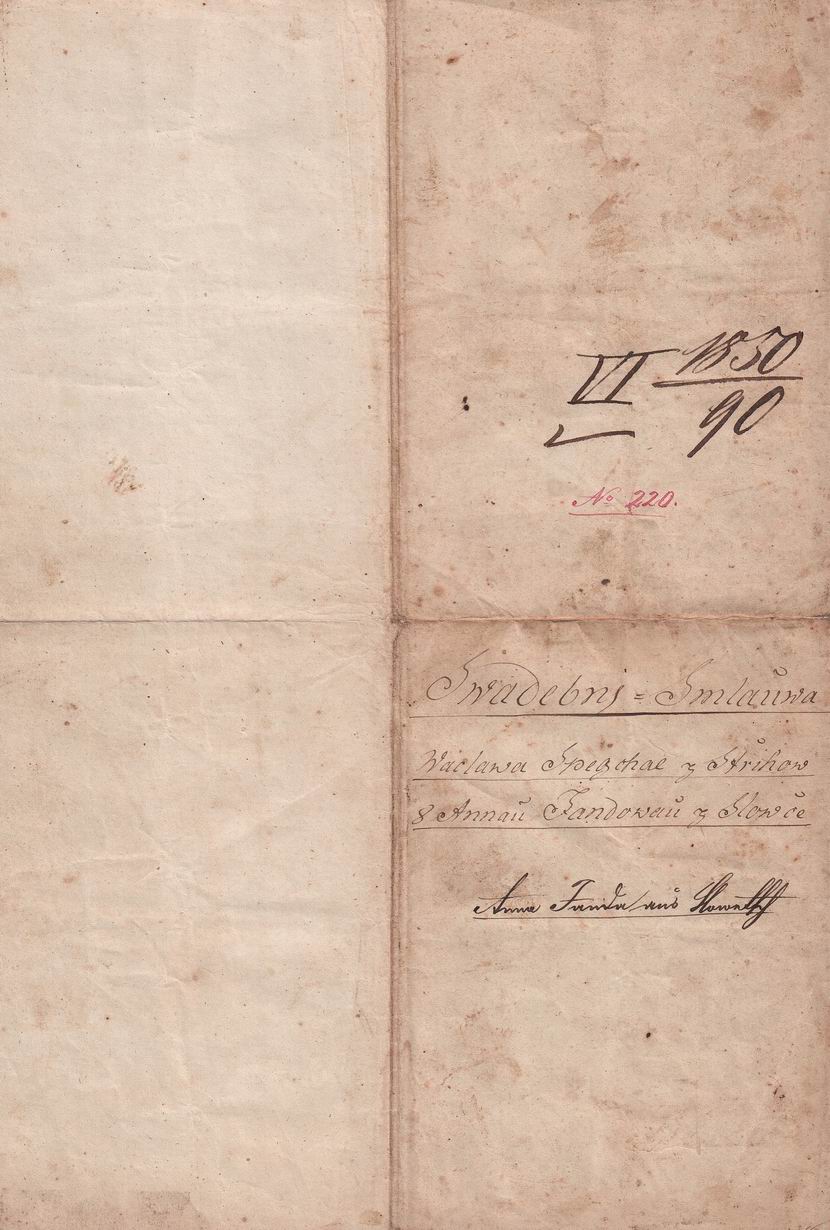 VI 1850
90
No 220.
Swadebnj = Smlauwa
Waclawa Speychal z Střihow
S Annau Fandowau z Slowče
Anna Fanda aus Slowetsch